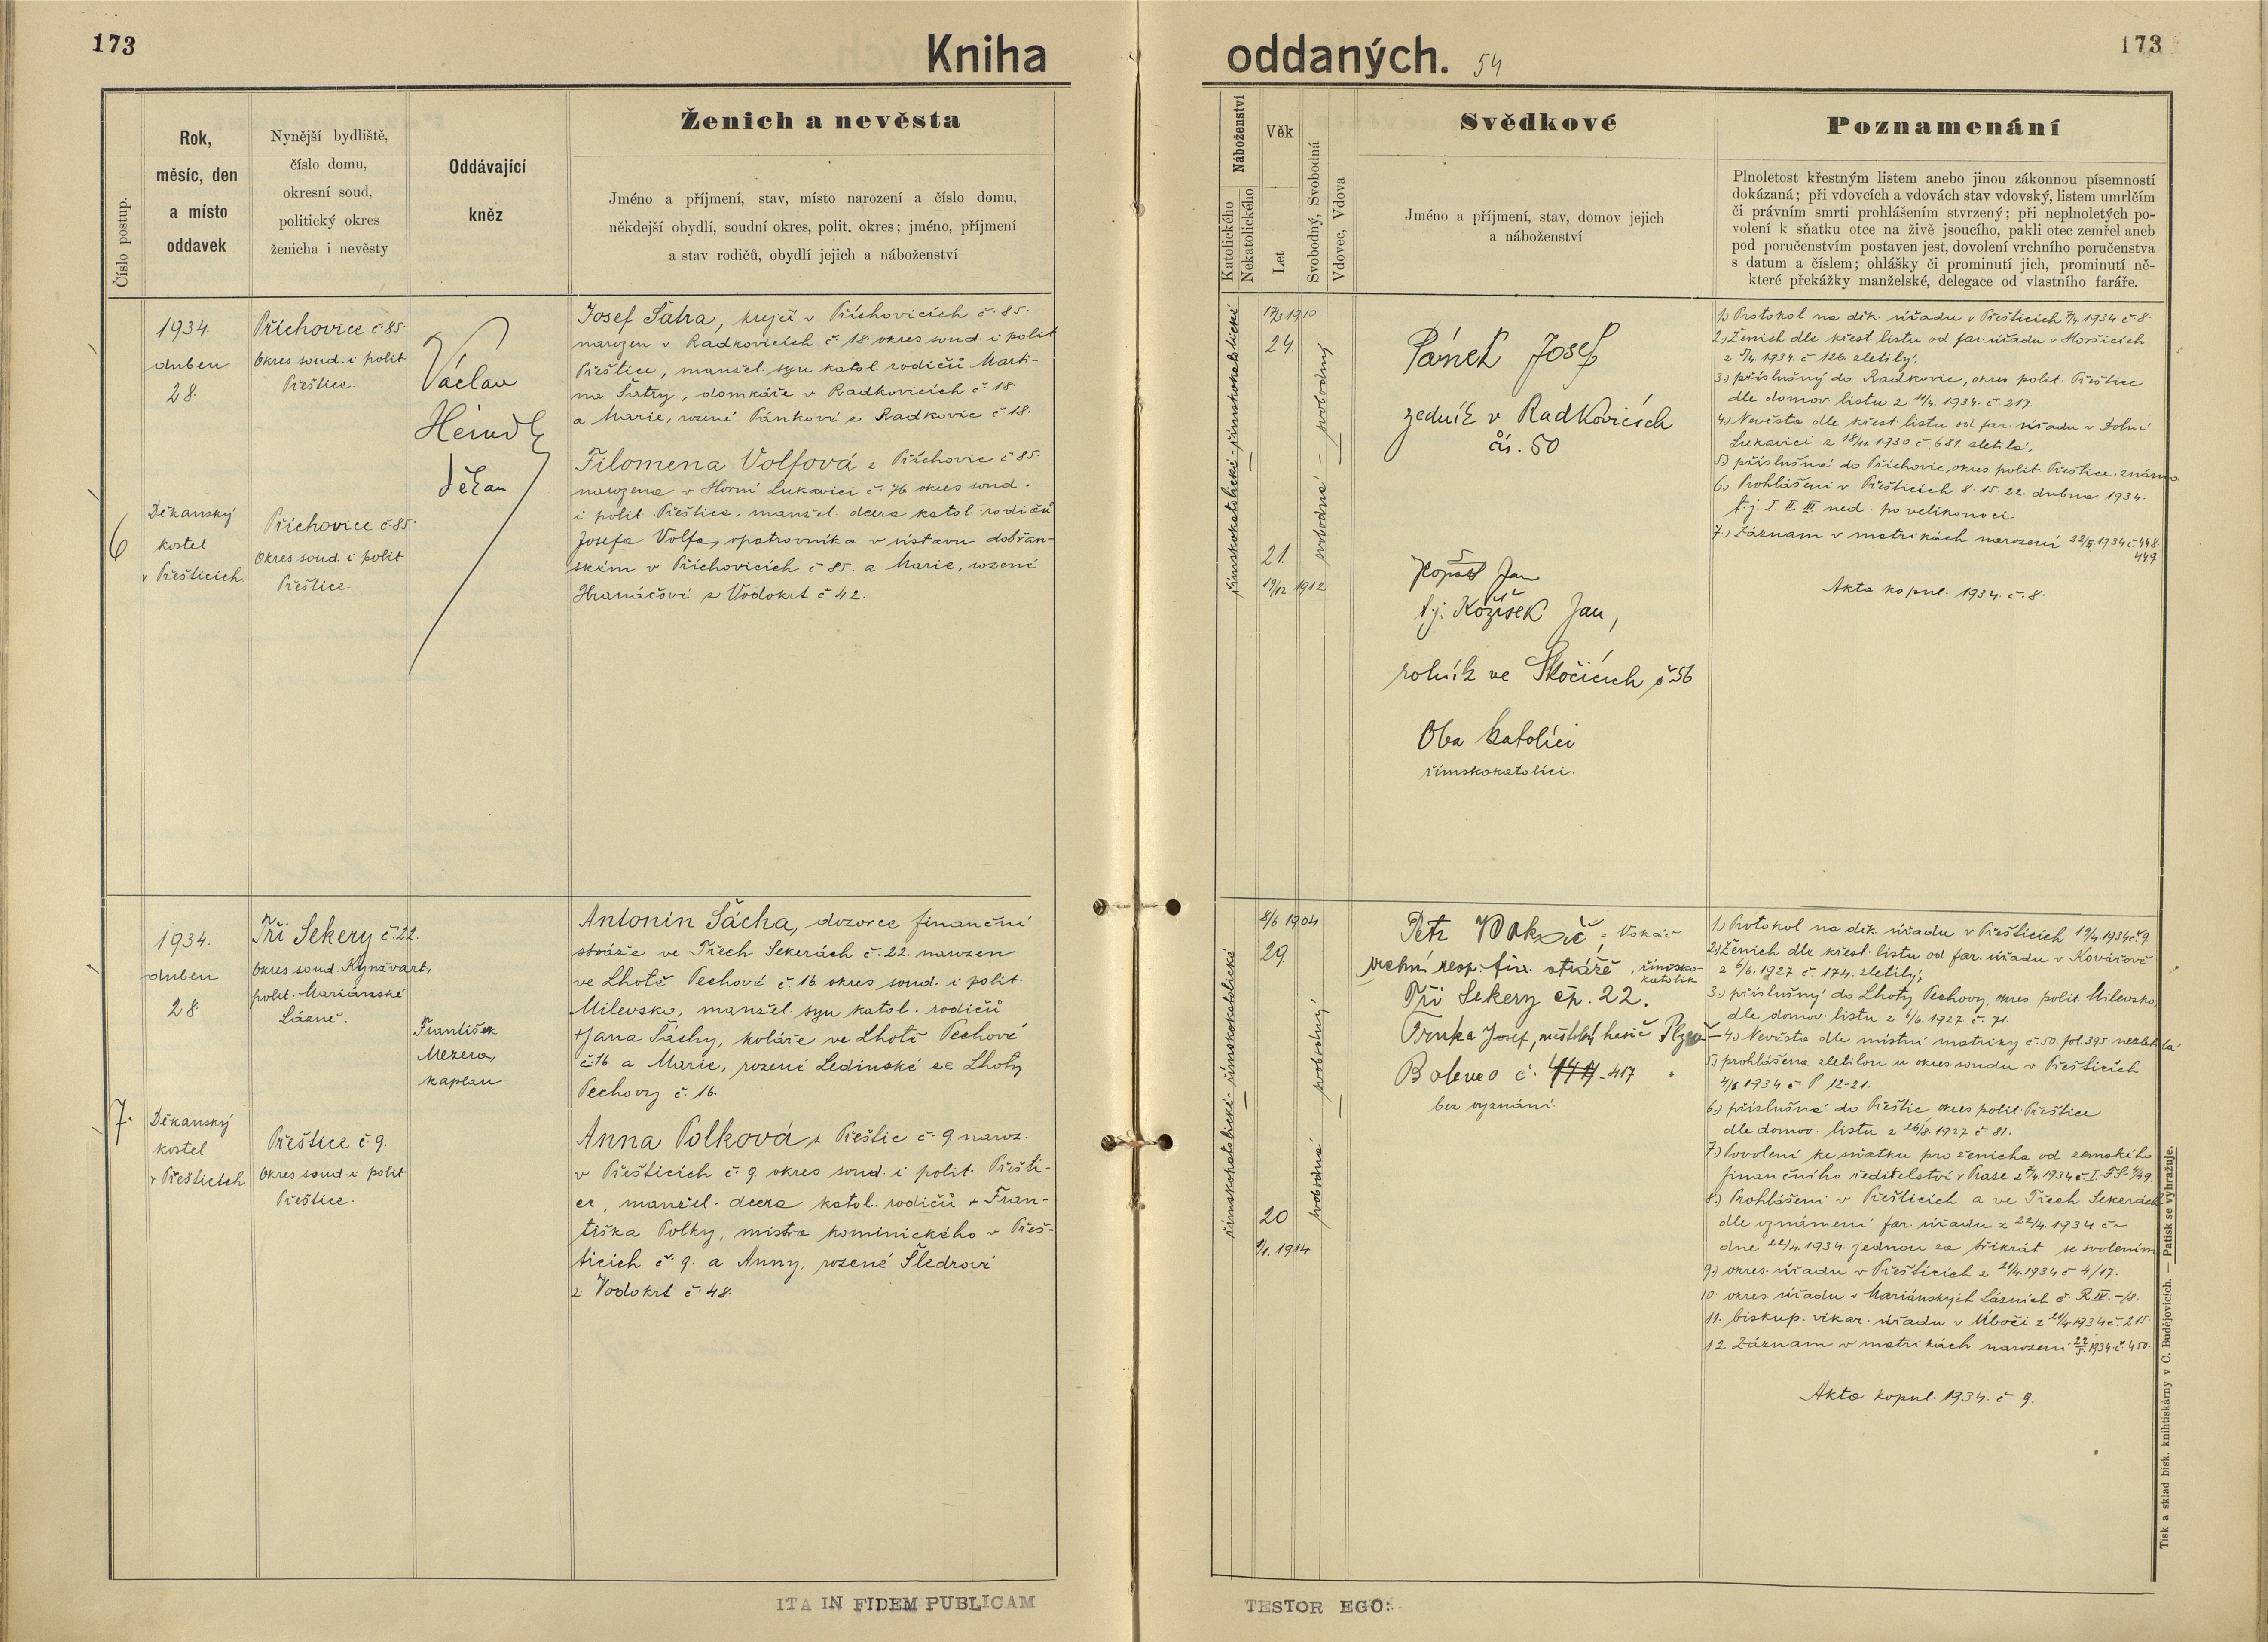 173
Kniha
oddaných. 54
173
Číslo postup.
Rok,
měsíc, den
a místo
oddavek
Nynější bydliště,
číslo domu,
okresní soud,
politický okres
ženicha i nevěsty
Oddávající
kněz
Ženich a nevěsta
Jméno a příjmení, stav, místo narození a číslo domu,
někdejší obydlí, soudní okres, polit. okres; jméno, příjmení
a stav rodičů, obydlí jejich a náboženství
Náboženství
Katolického
Nekatolického
Věk
Let
Svobodný, Svobodná
Vdovec, Vdova
Svědkové
Jméno a příjmení, stav, domov jejich
a náboženství
Poznamenání
Plnoletost křestným listem anebo jinou zákonnou písemností
dokázaná; při vdovcích a vdovách stav vdovský, listem umrlčím
či právním smrti prohlášením stvrzený; při neplnoletých po-
volení k sňatku otce na živě jsoucího, pakli otec zemřel aneb
pod poručenstvím postaven jest, dovolení vrchního poručenstva
s datum a číslem; ohlášky či prominutí jich, prominutí ně-
které překážky manželské, delegace od vlastního faráře.
6
1934.
duben
28.
Děkanský
kostel
v Přešticích
Příchovice č 85.
Okres soud. i polit
Přeštice.
Příchovice č 85.
Okres soud. i polit
Přeštice.
Václav
Heindl
děkan
Josef Šatra, krejčí v Příchovicích č. 85.
narozen v Radkovicích č. 18. okres soud. i polit
Přeštice, manžel. syn katol. rodičů Marti-
na Šatry, domkáře v Radkovicích č. 18
a Marie, rozené Pánkové z Radkovic č. 18.
Filomena Volfová z Příchovic č 85.
narozena v Horní Lukavici č. 76 okres soud.
i polit. Přeštice, manžel. dcera katol. rodičů
Josefa Volfa, opatrovníka v ústavu dobřan-
ském v Příchovicích č 85. a Marie, rozené
Hranáčové z Vodokrt č 42.
římskokatolické - římskokatolické
17/3 1910
24.
21.
19/12 1912
svobodná - svobodný
Pánek Josef
zedník v Radkovicích
čís. 50
Jan
t.j. Kožíšek Jan,
rolník ve Skočicích č 56
Oba katolíci
římskokatolíci.
1.) Protokol na děk. úřadu v Přešticích 7/4 1934 č 8.
2.) Ženich dle křest. listu od far. úřadu v Horšicích
z 7/4. 1934. č 126 zletilý.
3.) příslušný do Radkovic, okres polit. Přeštice
dle domov. listu z 11/4. 1934. č. 217.
4.) Nevěsta dle křest. listu od far. úřadu v Dolní
Lukavici z 18/11. 1930 č. 681. zletilá.
5.) příslušná do Příchovic, okres polit. Přeštice, známo
6.) Prohlášeni v Přešticích 8. 15. 22. dubna 1934.
t. j. I. II. III. ned. po velikonoci.
7.) Záznam v matrikách narození 22/5. 1934 č. 448.
449
Akta kopul. 1934. č. 8.
7.
1934.
duben
28.
Děkanský
kostel
v Přešticích
Tři Sekery č. 22.
Okres soud. Kynžvart,
polit. Mariánské
Lázně.
Přeštice č 9.
Okres soud. i polit
Přeštice.
František
Mezera,
kaplan
Antonín Šácha, dozorce finanční
stráže ve Třech Sekerách č. 22. narozen
ve Lhotě Pechově č 16 okres soud. i polit.
Milevsko, manžel. syn katol. rodičů
+Jana Šáchy, koláře ve Lhotě Pechově
č. 16 a Marie, rozené Ledinské ze Lhoty
Pechovy č. 16.
Anna Polková, z Přeštic č. 9 naroz.
v Přešticích č. 9 okres soud. i polit. Přešti-
ce, manžel. dcera katol. rodičů + Fran-
tiška Polky, mistra kominického v Přeš-
ticích č. 9. a Anny, rozené Šledrové
z Vodokrt č. 48.
římskokatolické - římskokatolické
8/6 1904
29.
20
9/1. 1914
svobodná - svobodný
Petr Vokáč = Vokáč
vrchní resp. fin. stráže, římsko-
katolík
Tři Sekery čp. 22.
Trnka Josef, městský hasič Plzeň -
Bolevec č. 417
bez vyznání.
1.) Protokol na děk. úřadu v Přešticích 19/4. 1934 č. 9.
2.) Ženich dle křest. listu od far. úřadu v Kovářově
z 6/6. 1927 č 174. zletilý,
3.) příslušný do Lhoty Pechovy, okres polit. Milevsko,
dle domov. listu z 6/6. 1927 č. 71.
4.) Nevěsta dle místní matriky č. 50. fol. 395. nezletilá
5.) prohlášena zletilou u okres. soudu v Přešticích
1934 č P 12-21.
6.) příslušná do Přeštic okres polit. Přeštice
dle domov. listu z 26/8. 1927 č 81.
7.) Povolení ke sňatku pro ženicha od zemského
finančního ředitelství v Praze
8.) Prohlášeni v Přešticích a ve Třech Sekerách
dle oznámení far. úřadu z 22/4. 1934 č -
dne 22/4. 1934. jednou za třikrát se svolením
9.) okres. úřadu v Přešticích z 21/4. 1934 č 4/17.
10. okres. úřadu v Mariánských Lázních č. R IV. -/8.
11. biskup. vikar. úřadu v Úboči z 21/4 1934 č. 215.
12 Záznam v matrikách narození 22/5. 1934. č. 450.
Akta kopul. 1934. č 9.
Tisk a sklad bisk. knihtiskárny v Č. Budějovicích. — Patisk se vyhražuje.
ITA IN FIDEM PUBLICAM
TESTOR EGO: